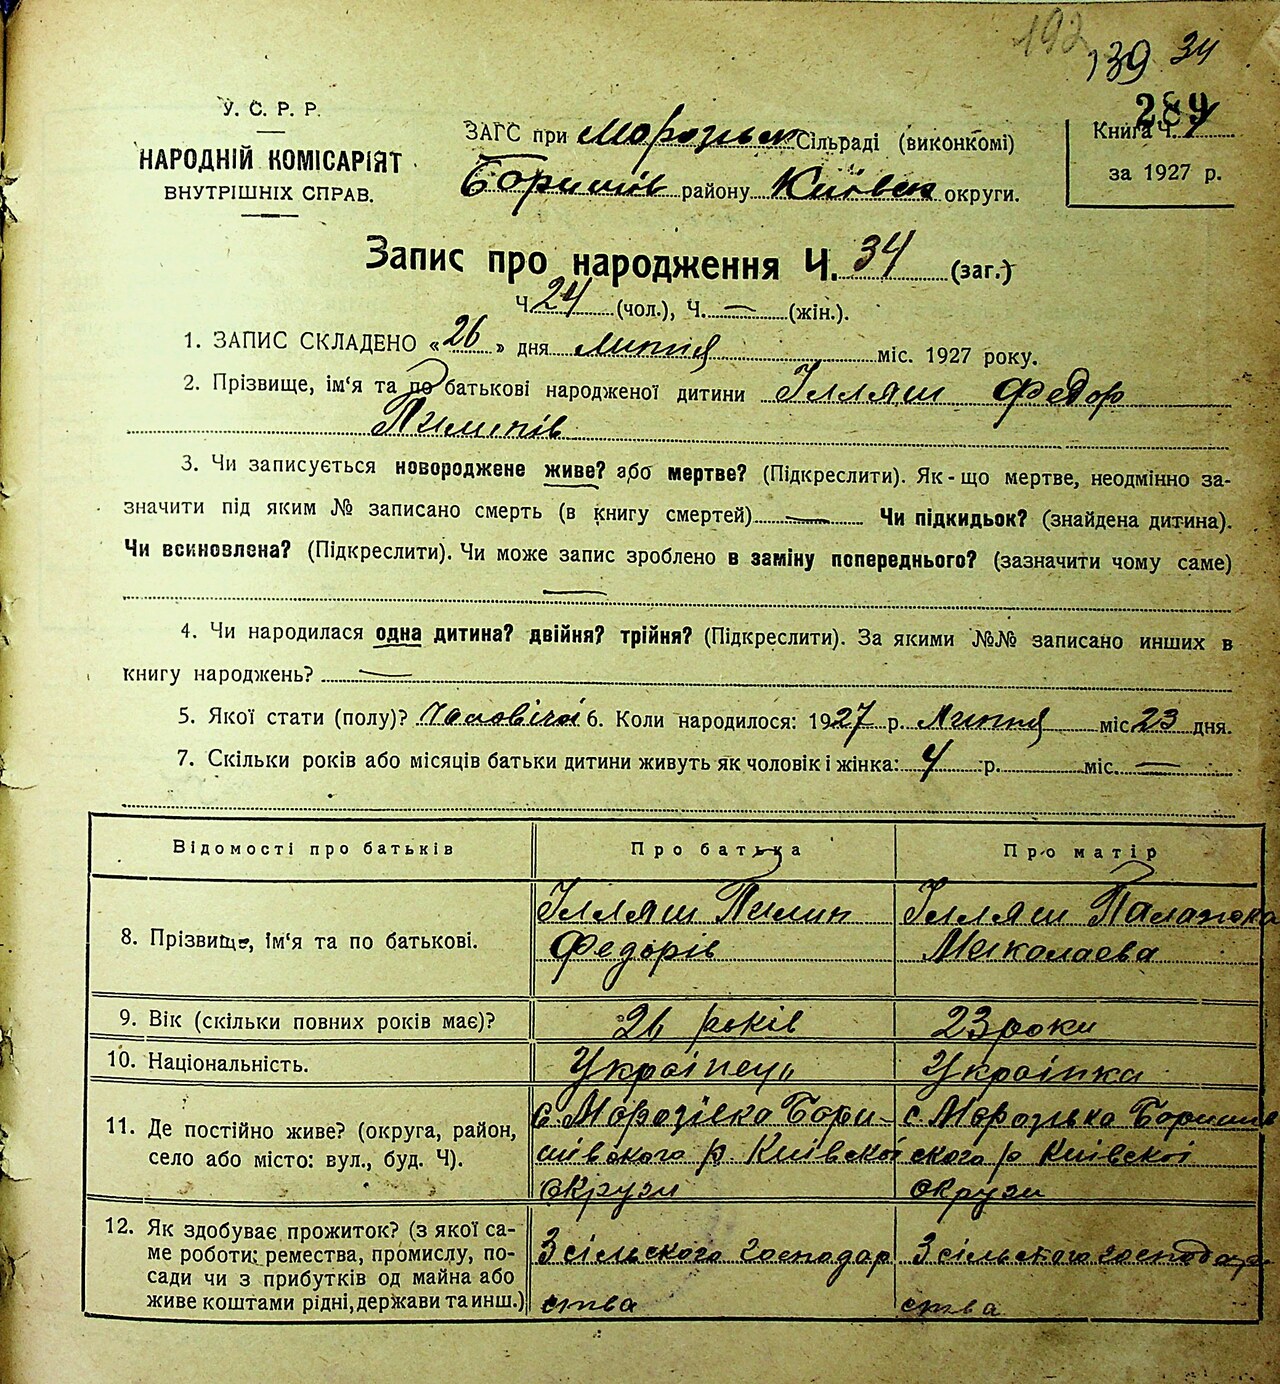 192
139 34
289
У. С. Р. Р.
НАРОДНІЙ КОМІСАРІЯТ
ВНУТРІШНІХ СПРАВ.
ЗАГС при Морозівск Сільраді (виконкомі)
Боришпів району Київск округи.
Книга Ч. 1
за 1927 р.
Запис про народження Ч. 34 (заг.)
Ч. 24 (чол.), Ч. — (жін.).
1. ЗАПИС СКЛАДЕНО «26» дня липня міс. 1927 року.
2. Прізвище, ім‘я та по батькові народженої дитини Ілляш Федор
Пилипів
3. Чи записується новороджене живе? або мертве? (Підкреслити). Як-що мертве, неодмінно за-
значити під яким № записано смерть (в книгу смертей) — Чи підкидьок? (знайдена дитина).
Чи всиновлена? (Підкреслити). Чи може запис зроблено в заміну попереднього? (зазначити чому саме)
—
4. Чи народилася одна дитина? двійня? трійня? (Підкреслити). За якими №№ записано инших в
книгу народжень? —
5. Якої стати (полу)? Чоловічої 6. Коли народилося: 1927 р. Липня міс. 23 дня.
7. Скільки років або місяців батьки дитини живуть як чоловік і жінка: 4 р. міс. —
Відомості про батьків Про батька Про матір
8. Прізвище, ім‘я та по батькові. Ілляш Пилип Ілляш Палажка
Федорів Миколаєва
9. Вік (скільки повних років має)? 26 років 23 роки
10. Національність. Українец Українка
11. Де постійно живе? (округа, район, с. Морозівка Бори- с. Морозівка Боришпів
село або місто: вул., буд. Ч). шпівского р. Київскої ского р Київскої
округи округи
12. Як здобуває прожиток? (з якої са- З сільського господар З сільського господар
ме роботи: ремества, промислу, по- ства ства
сади чи з прибутків од майна або
живе коштами рідні, держави та инш.)